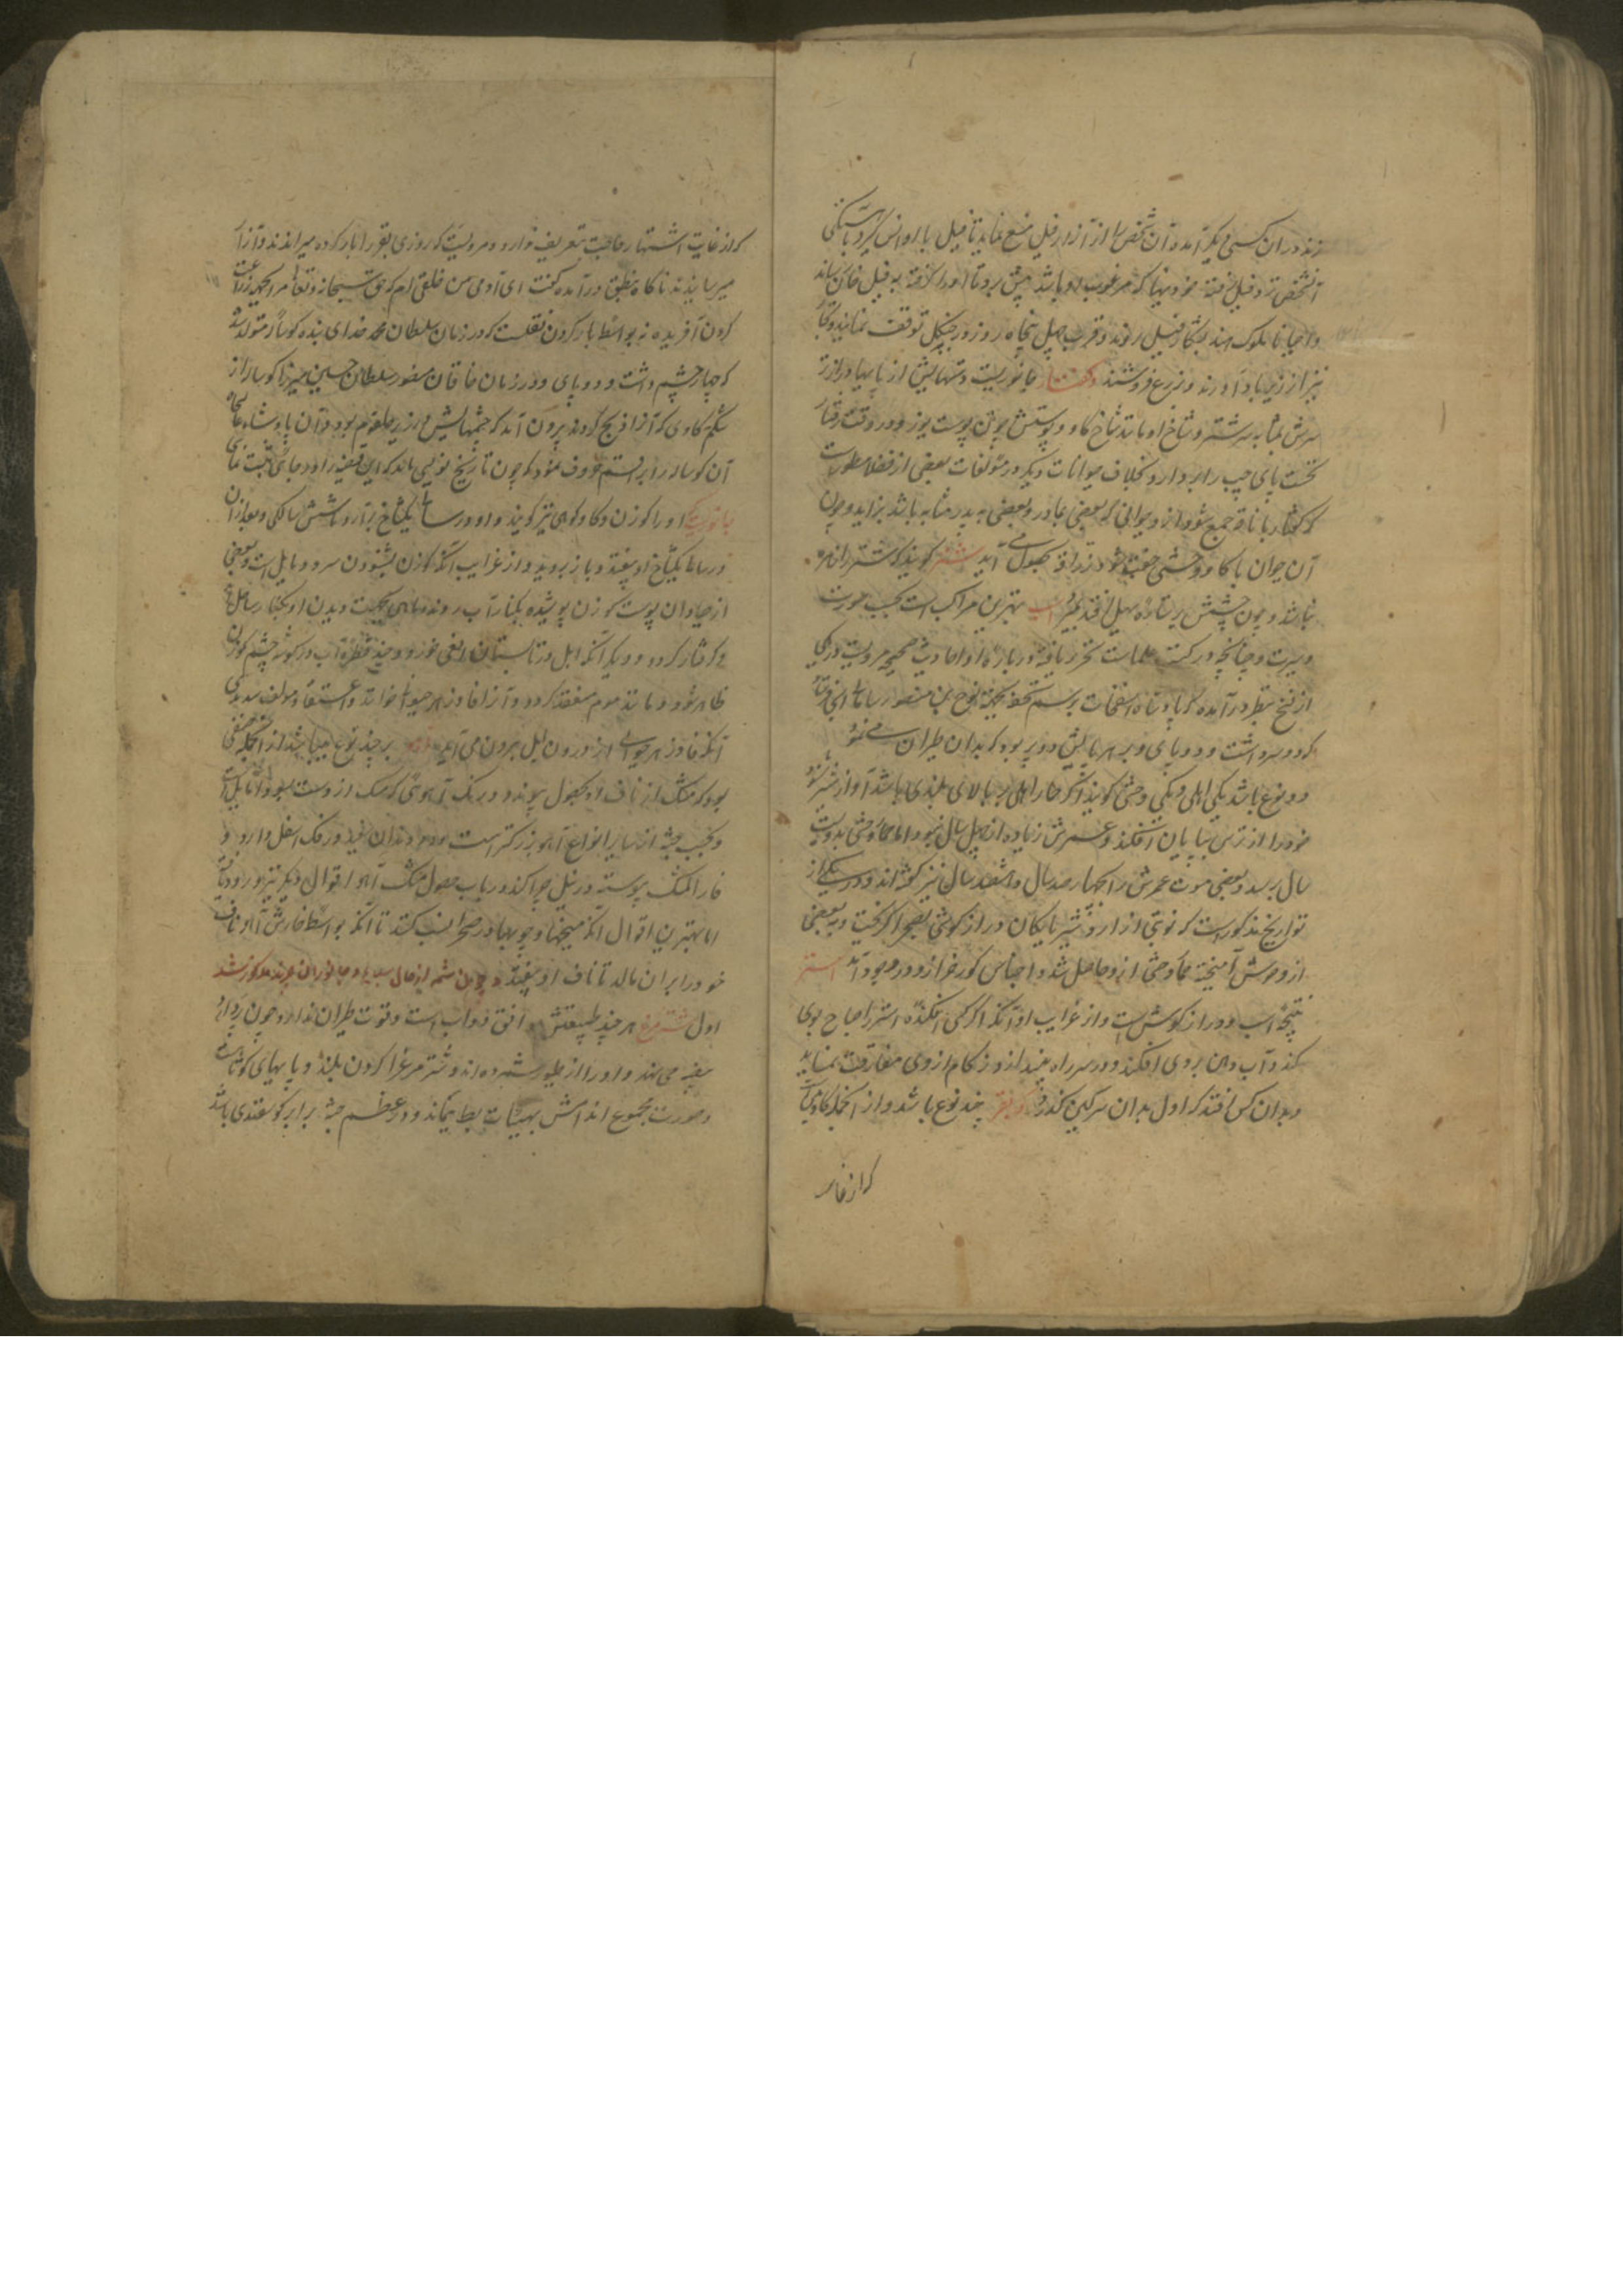 زند در آن کسی دیگر آمده آن شخص را از آزار فیل منع نماید تا فیل با او انس گیرد
آنشخص نزد فیل رفته میوه‌ها که مرغوب او باشد پیش برد تا او را گرفته به فیل خانه رساند
و احیانا ملوک هند بشکار فیل روند و قریب چهل پنجاه روز در جنگل توقف نمایند
نیز از زیرباد آورند و بزرع فروشند جانوریست دستهایش از پایها درازتر
سرش بمثابه سر شتر و شاخ او مانند شاخ گاو و پوستش چون پوست یوز و در وقت رفتار
نخست پای چپ را بردارد بخلاف حیوانات دیگر و در مؤلفات بعضی از فضلا مسطورست
که کفتار با ناقه جمع شود از و حیوانی که بعضی بمادر و بعضی به پدر مشابه باشد بزاید و چون
آن حیوان با گاو وحشی جفت شود زرافه بحصول می آید شتر گویند که شتر را زهره
نباشد و چون چشمش بر ستاره سهیل افتد بمیرد اسب بهترین مراکب است بحسب صورت
و سیرت و چنانچه در کتب علماست تحریر یافته در باره او احادیث صحیحه مرویست در یکی
از نسخ بنظر در آمده که پادشاه برسم تحفه بجهة نوح بن منصور سامانی اسبی فرستاد
که دو سر داشت و دو پای و بر هر پایش دو پر بود که بدان طیران می نمود
دو نوع باشد یکی اهلی و یکی وحشی گویند اگر حمار اهلی بر بالای بلندی باشد آواز شیر شنود
خود را از ترس بپایان افکند و عمرش زیاده از چهل سال نبود اما حمار وحشی بدویست
سال برسد و بعضی مدت عمرش را چهار صد سال و هشتصد سال نیز گفته اند و در یکی از
تواریخ مذکورست که نوبتی از اردشیر بابکان دراز گوشی بصحرا گریخت و به بعضی
از وحوش آمیخته حمار وحشی از و حاصل شد و اجناس گورخر ازو در وجود آمد استر
نتیجه اسب و دراز گوش است و از غرایب او آنکه اگر کسی افکنده استر را بوی
کند و آب دهن بروی افکند و در سر راه بیندازد زکام از وی مفارقت نماید
و بدان کس افتد که اول بدان سرگین گذرد بقر چند نوع باشد و از آنجمله گاویست
که از غایت
که از غایت اشتهار حاجت بتعریف ندارد و مرویست که روزی بقر را بار کرده میراندند و آزار
میرسانیدند ناگاه بنطق در آمده گفت ای آدمی من خلقی ام که حق سبحانه و تعالی مرا بجهة زراعت
کردن آفریده نه بواسطه بار کردن نقلست که در زمان سلطان محمد خدای بنده گوساله متولد شد
که چهار چشم داشت و دو پای و در زمان خاقان منصور سلطان حسین میرزا گوساله از
شکم گاوی که آنرا ذبح کردند بیرون آمد که چشمهایش در زیر حلقوم بود و آن پادشاه
آن گوساله را براقم حروف نمود که چون تاریخ نویسی باید که این قضیه را در جای ثبت نمای
او را گوزن و گاو کوهی نیز گویند و او در سالی یکشاخ برآرد تا شش سالگی و بعد از آن
در سالی یکشاخ او بیفتد و باز بروید و از غرایب آنکه گوزن بشنودن سرود مایل است و بعضی
از صیادان پوست گوزن پوشیده بکنار آب روند ماهی بجهت دیدن او بکنار ساحل آید
و گرفتار گردد و دیگر آنکه ایل در تابستان افعی خورد و چند قطره آب در گوشه چشم گوزن
ظاهر شود و مانند موم منعقد گردد و آنرا فادزهر حیوانی خوانند و اعتقاد مولف
آنکه فادزهر حیوانی از درون ایل بیرون می آید آهو بر چند نوع باشد از آنجمله صنفی
بود که مشک از ناف او بحصول پیوندد و به رنگ آهوی که مشک ازوست بسواد مایل است
و بحسب جثه از سایر انواع آهو بزرگتر است و دو دندان سفید در فک اسفل دارد و
فارة المسک پیوسته در نیل چرا کند و در باب حصول مشک آهو اقوال دیگر نیز ورود یافته
اما بهترین اقوال آنکه میخها و چوبها در صحرا نصب کنند تا آنکه بواسطه خارش آهو ناف
خود را بر آن مالد تا ناف او بیفتد و چون شمه از حال سباع و جانوران چرنده مذکور شد
اول شتر مرغ هر چند طبیعتش موافق دواب است و قوت طیران ندارد چون
بیضه می نهد و او را از طیور شمرده اند و شتر مرغ را گردن بلند و پایهای کوتاه
و صورت مجموع اندامش بهیئات بط میماند و در عظم جثه برابر گوسفندی باشد